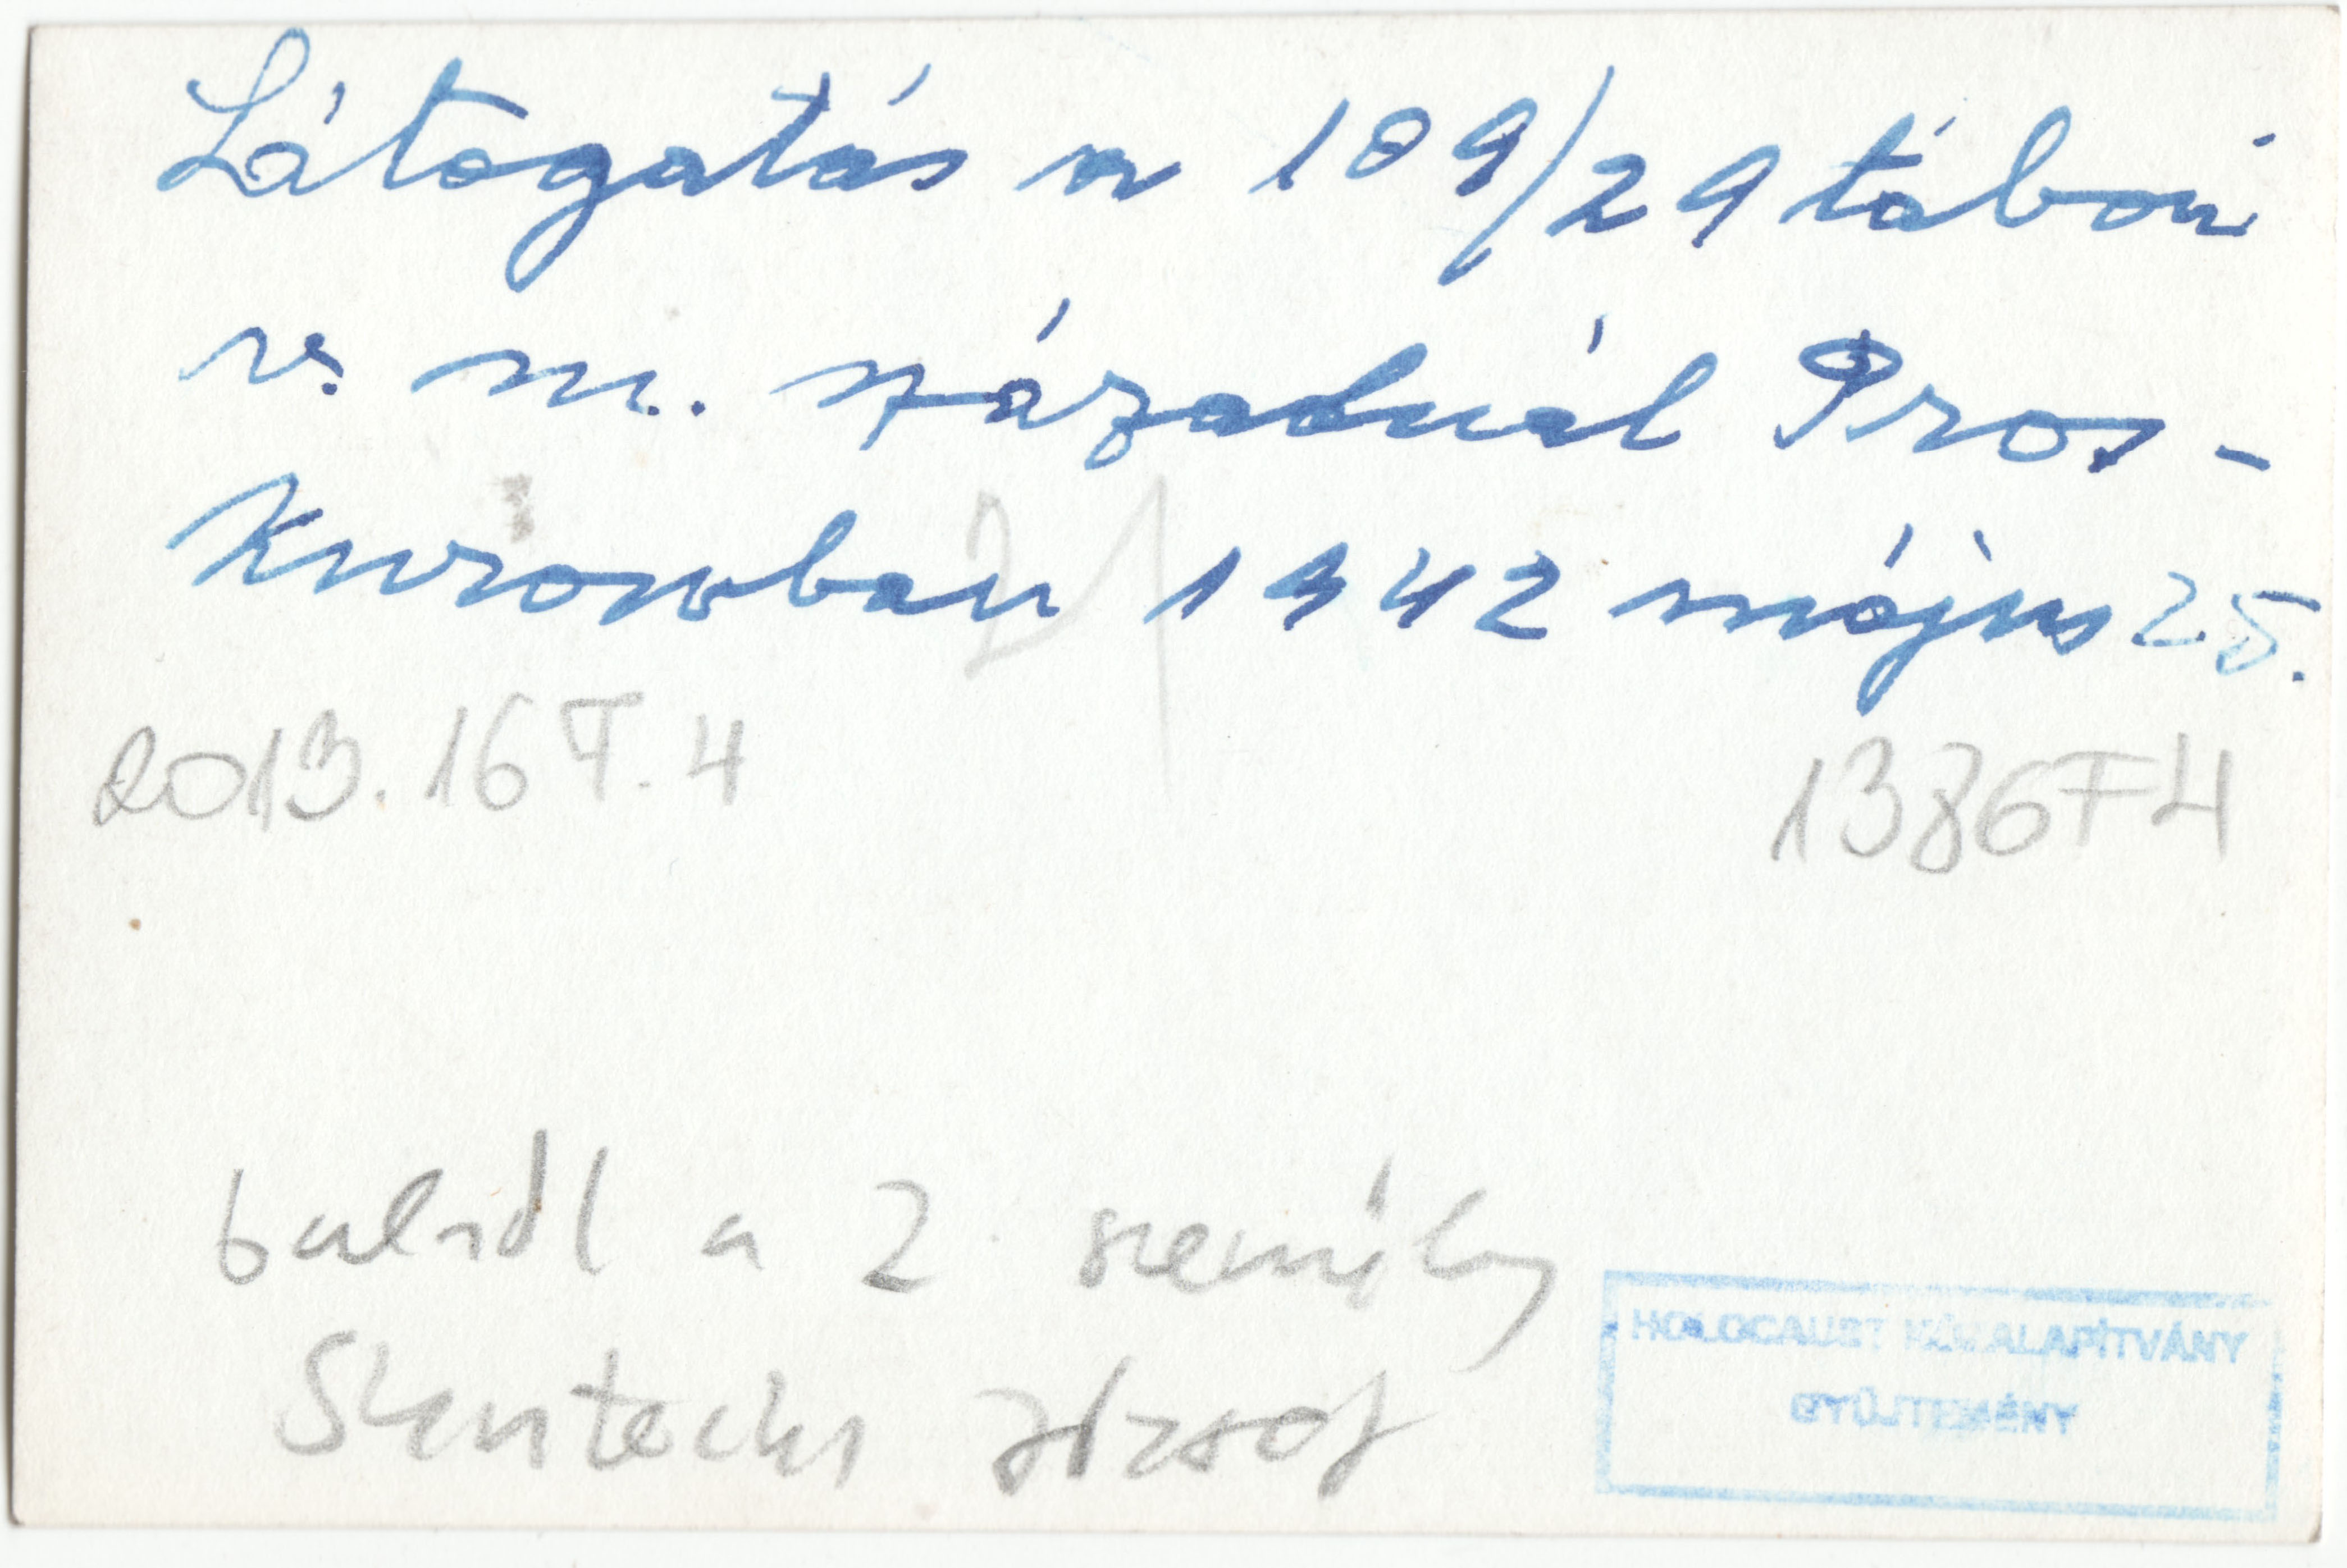 Látogatás a 109/29 tábori
v. m. századnál Pros-
kurowban 1942 május 25.
21
2013.16T.4
1386F4
balról a 2. személy
József
HOLOCAUST KÖZALAPÍTVÁNY
GYŰJTEMÉNY